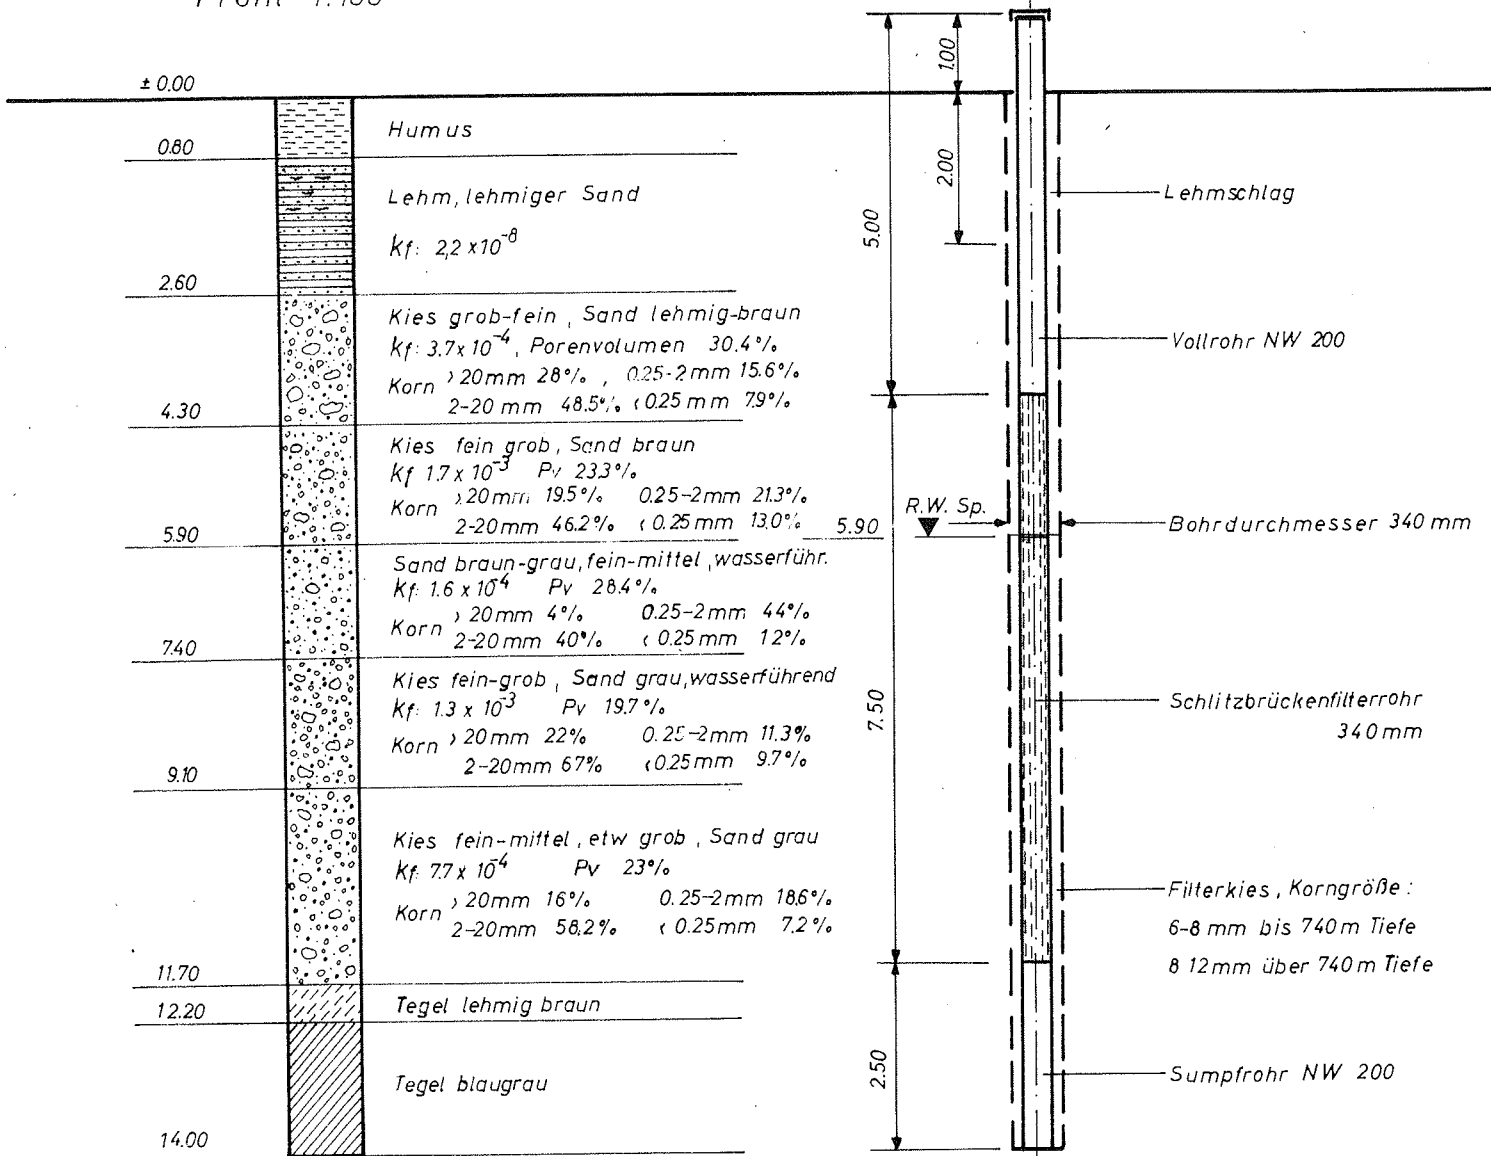 Profil 1:100
± 0.00
Humus
0.80
Lehm, lehmiger Sand
kf: 2,2 x 10⁻⁸
2.60
Kies grob-fein, Sand lehmig-braun
kf: 3.7 x 10⁻⁴, Porenvolumen 30.4%
Korn >20mm 28%, 0.25-2mm 15.6%
2-20 mm 48.5% <0.25 mm 7.9%
4.30
Kies fein grob, Sand braun
Kf 1.7 x 10⁻³ Pv 23.3%
Korn >20mm 19.5% 0.25-2mm 21.3%
2-20mm 46.2% <0.25mm 13.0%
5.90
Sand braun-grau, fein-mittel, wasserführ.
Kf: 1.6 x 10⁻⁴ Pv 28.4%
Korn >20mm 4% 0.25-2mm 44%
2-20mm 40% <0.25mm 12%
7.40
Kies fein-grob, Sand grau, wasserführend
Kf: 1.3 x 10⁻³ Pv 19.7%
Korn >20mm 22% 0.25-2mm 11.3%
2-20mm 67% <0.25mm 9.7%
9.10
Kies fein-mittel, etw grob, Sand grau
Kf: 7.7 x 10⁻⁴ Pv 23%
Korn >20mm 16% 0.25-2mm 18.6%
2-20mm 58.2% <0.25mm 7.2%
11.70
Tegel lehmig braun
12.20
Tegel blaugrau
14.00
1.00
2.00
5.00
7.50
2.50
5.90
R.W. Sp.
Lehmschlag
Vollrohr NW 200
Bohrdurchmesser 340 mm
Schlitzbrückenfilterrohr
340 mm
Filterkies, Korngröße:
6-8 mm bis 740 m Tiefe
8 12mm über 740 m Tiefe
Sumpfrohr NW 200